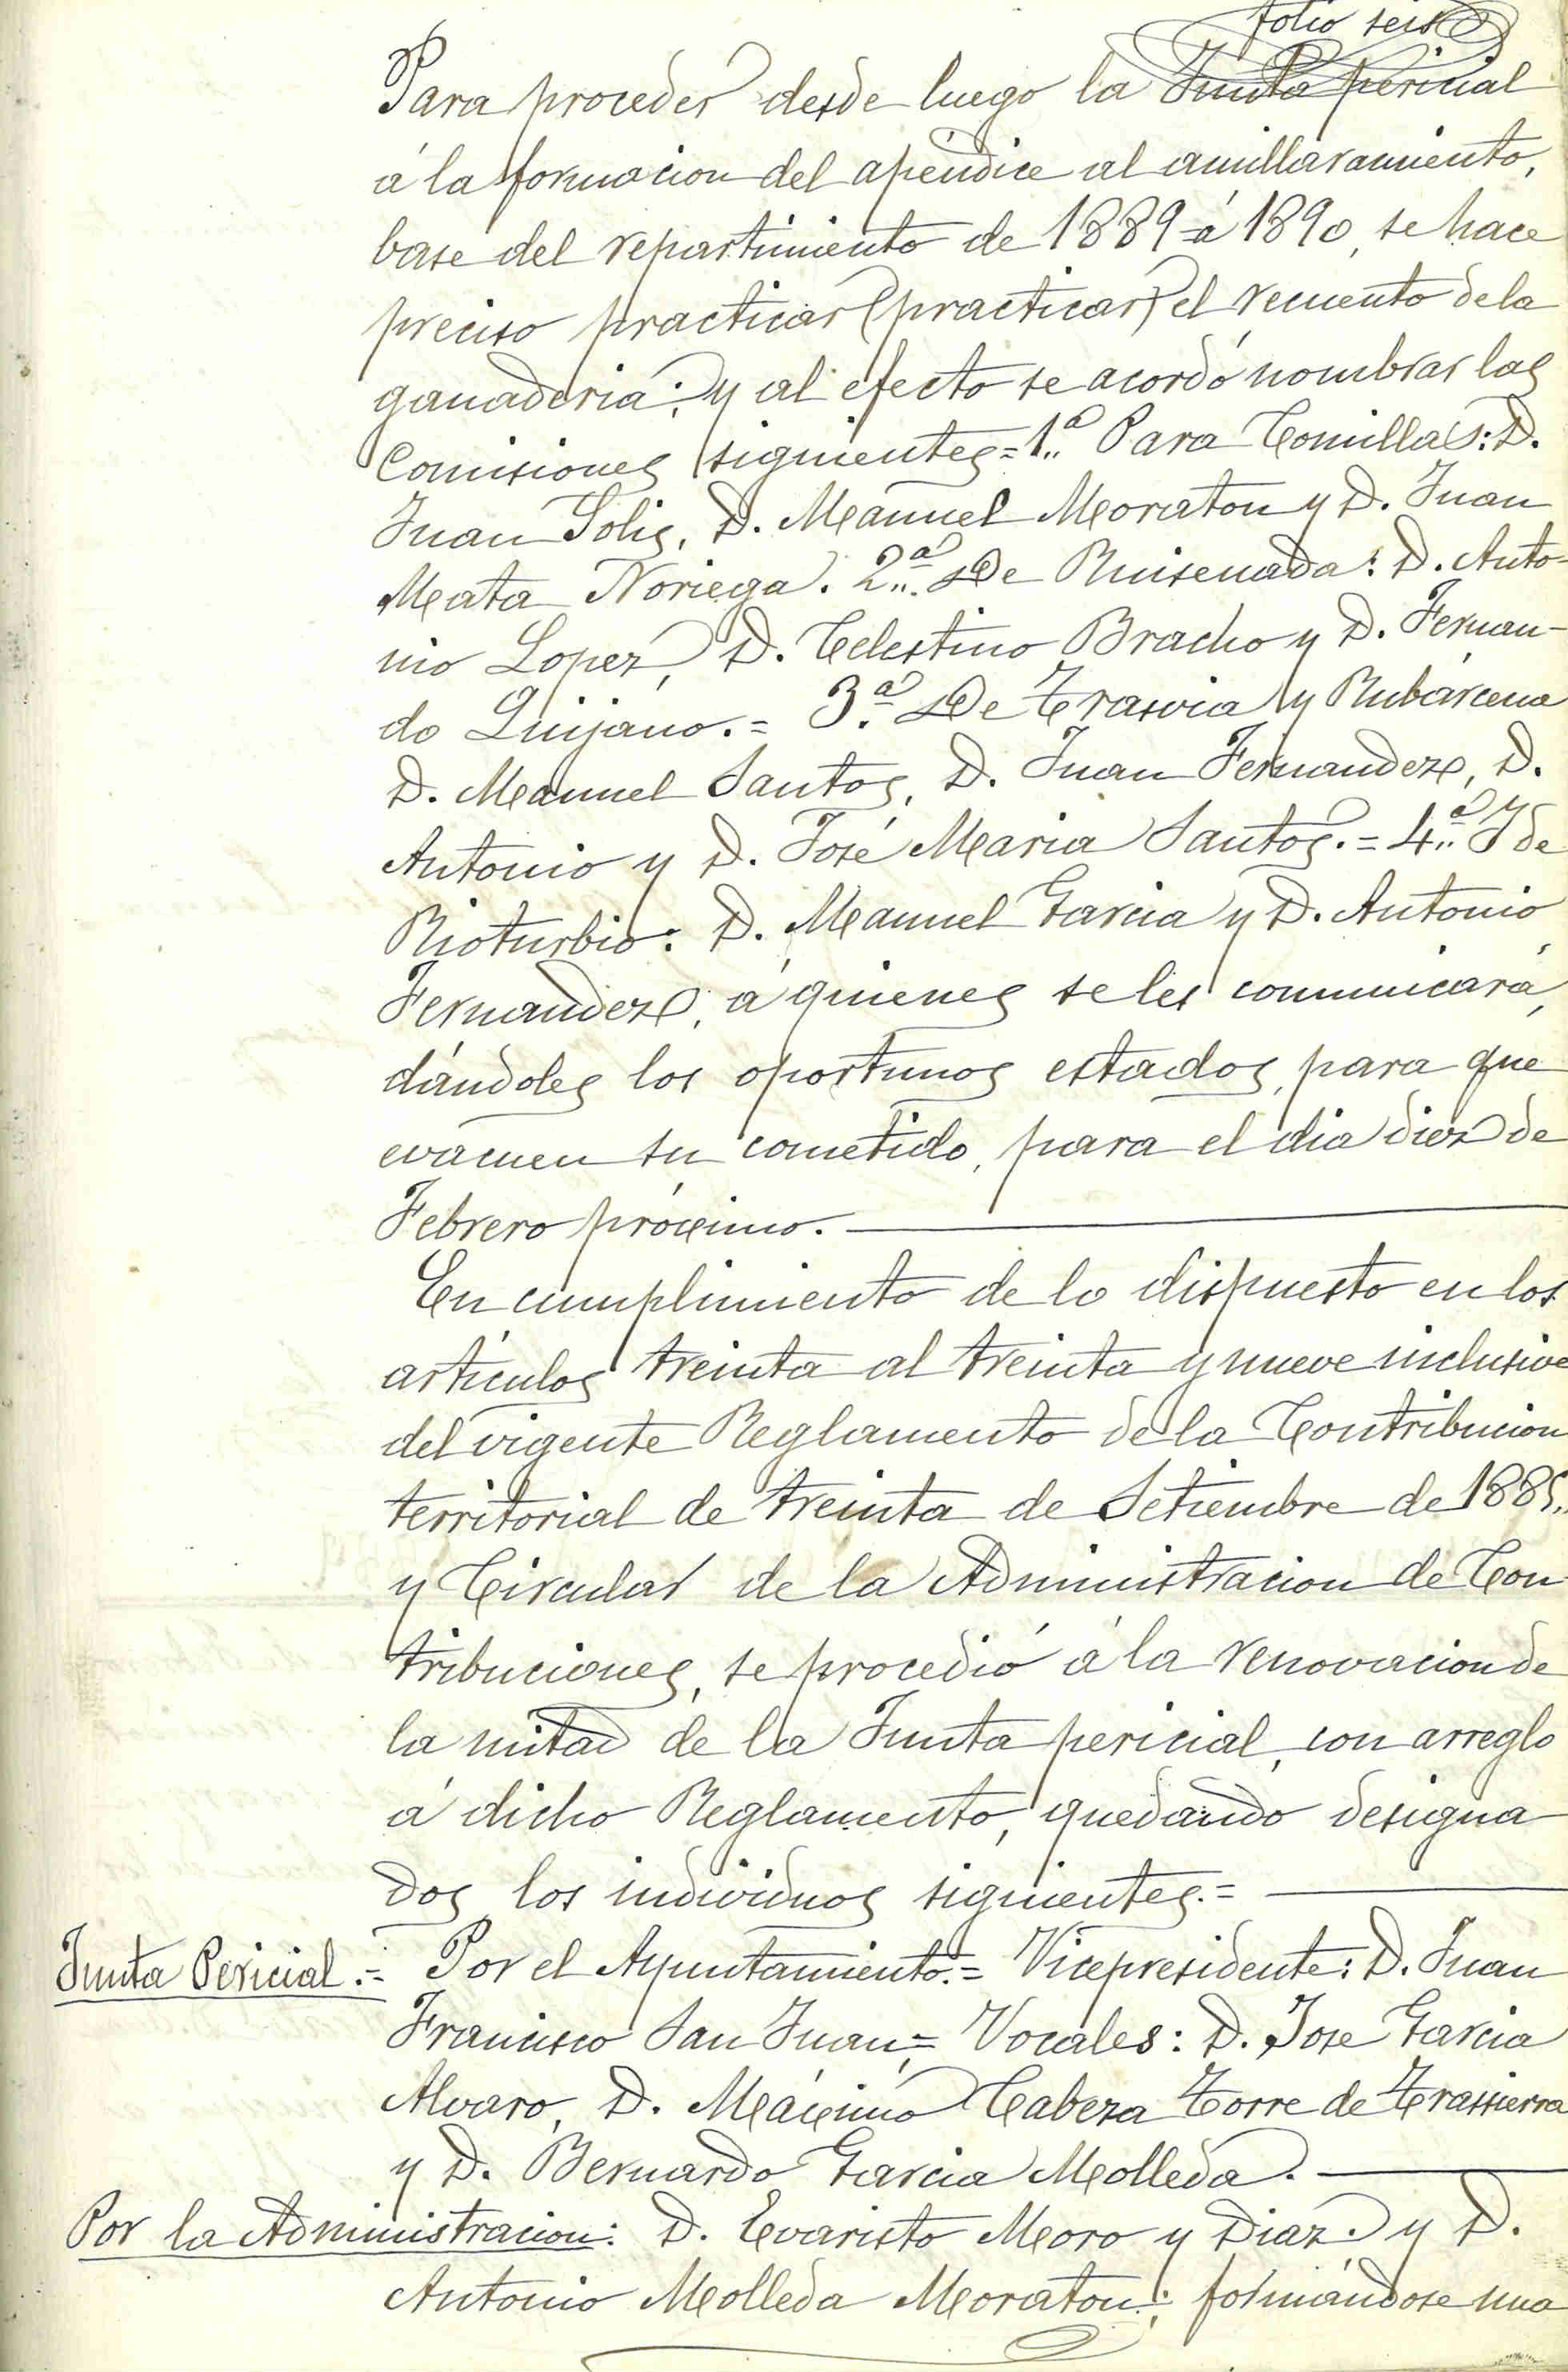 folio seis
Para proceder desde luego la Junta pericial
á la formacion del apéndice al amillaramiento,
base del repartimiento de 1889 á 1890, se hace
preciso practicar (practicar) el recuento de la
ganaderia; y al efecto se acordó nombrar las
Comisiones siguientes = 1.ª Para Comillas: D.
Juan Solis, D. Manuel Moraton y D. Juan
Mata Noriega. 2.ª De Ruisenada: D. Anto-
nio Lopez, D. Celestino Bracho y D. Fernan-
do Quijano. = 3.ª De Trasvia y Rubárcena
D. Manuel Santos, D. Juan Fernandez, D.
Antonio y D. José Maria Santos. = 4.ª Y de
Rioturbio: D. Manuel Garcia y D. Antonio
Fernandez, á quienes se les comunicará,
dándoles los oportunos estados, para que
evacuen su cometido, para el dia diez de
Febrero próximo.
En cumplimiento de lo dispuesto en los
artículos treinta al treinta y nueve inclusive
del vigente Reglamento de la Contribucion
territorial de treinta de Setiembre de 1885,
y Circular de la Administracion de Con-
tribuciones, se procedió á la renovacion de
la mitad de la Junta pericial, con arreglo
á dicho Reglamento, quedando designa
dos los individuos siguientes. =
Junta Pericial. = Por el Ayuntamiento. = Vicepresidente: D. Juan
Francisco San Juan = Vocales: D. Jose Garcia
Alvaro, D. Máximo Cabeza Torre de Trassierra
y D. Bernardo Garcia Molleda.
Por la Administracion: D. Evaristo Moro y Diaz. y D.
Antonio Molleda Moraton; formándose una